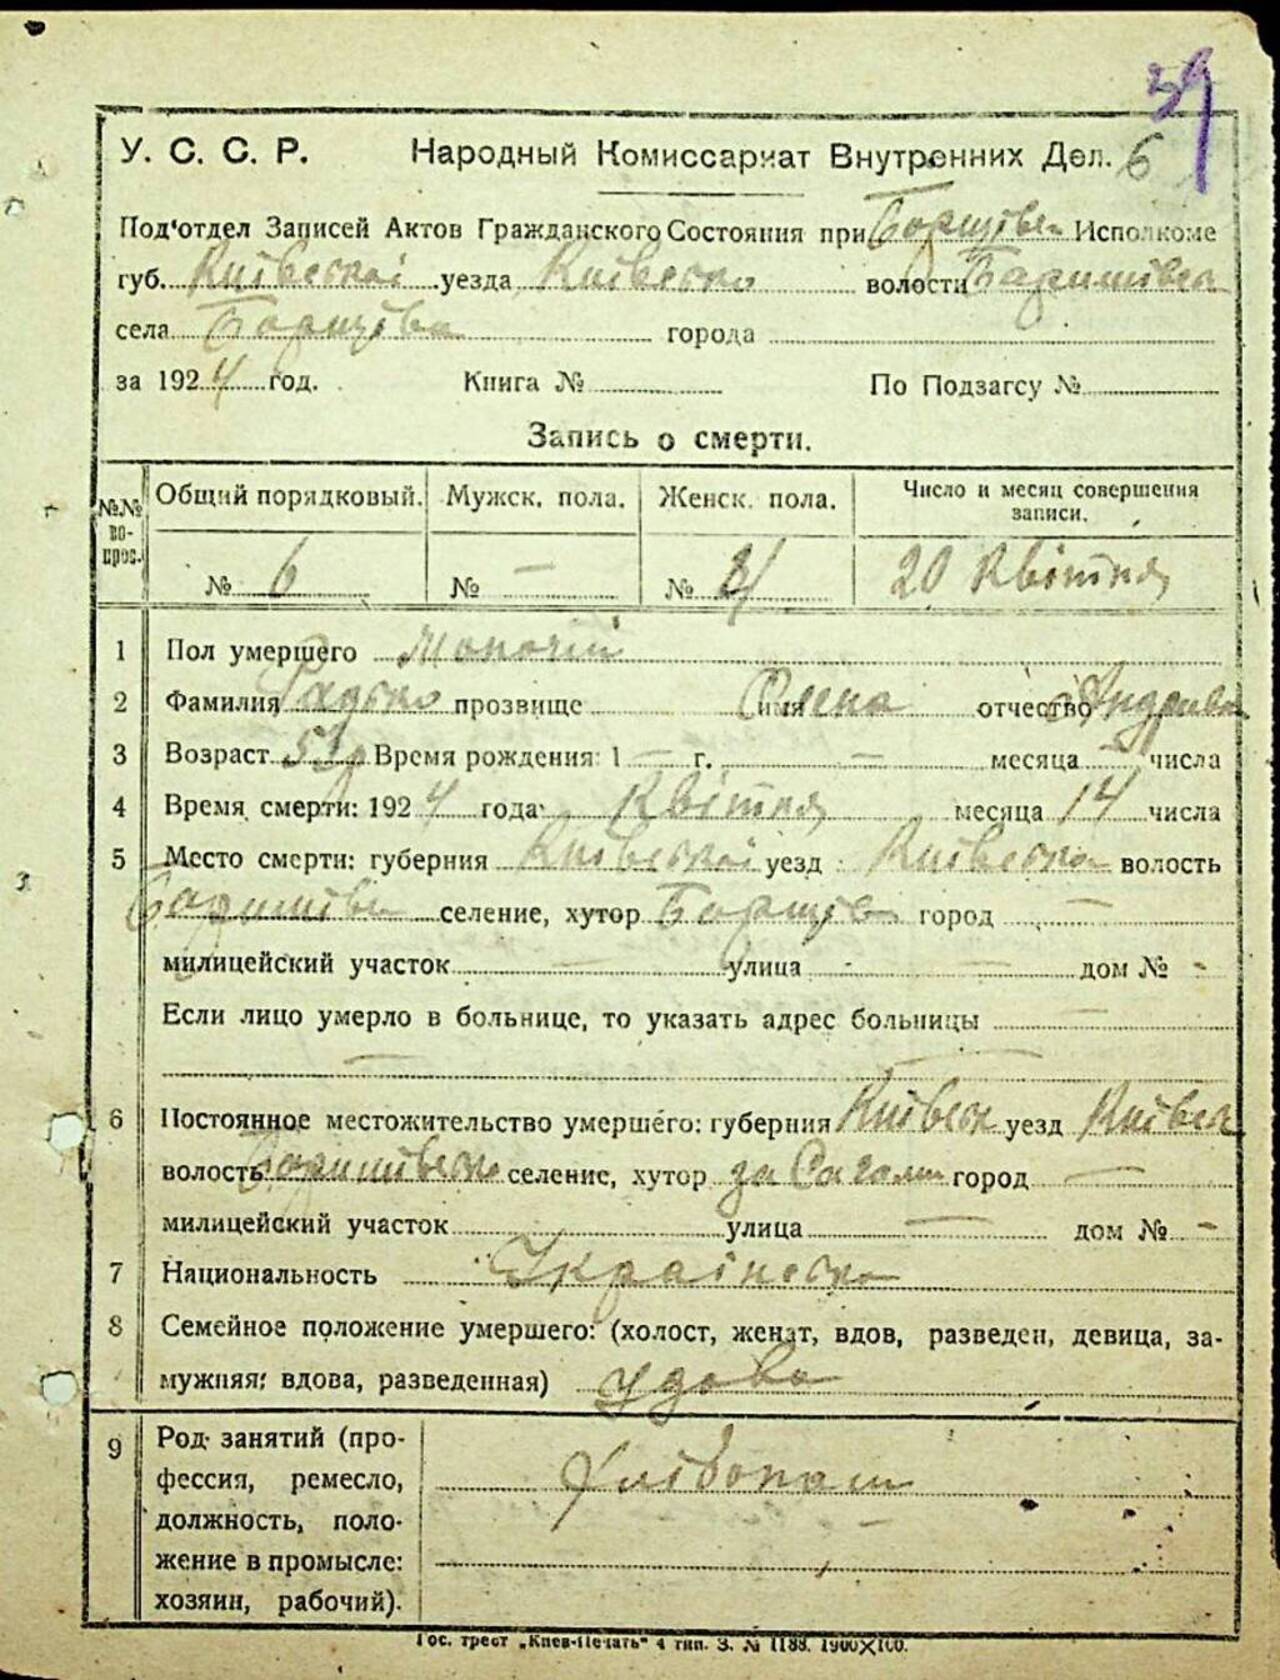 39
У. С. С. Р. Народный Комиссариат Внутренних Дел. 6
Под'отдел Записей Актов Гражданского Состояния при Борщівськ Исполкоме
губ. Київської уезда Київсько волости Баришівск
села Борщівка города
за 1924 год. Книга № По Подзагсу №
Запись о смерти.
№№ вопрос. Общий порядковый. Мужск. пола. Женск. пола. Число и месяц совершения записи.
№ 6 № — № 4 20 Квітня
1 Пол умершего Жіночий
2 Фамилия прозвище имя Олена отчество Андріівн
3 Возраст Время рождения: 1 — г. — месяца — числа
4 Время смерти: 1924 года Квітня месяца 14 числа
5 Место смерти: губерния Київської уезд Київсько волость
Баришівск селение, хутор Борщів город —
милицейский участок — улица — дом № -
Если лицо умерло в больнице, то указать адрес больницы —
6 Постоянное местожительство умершего: губерния Київськ уезд Київськ
волость Баришівсько селение, хутор город —
милицейский участок улица — дом № -
7 Национальность Українсько
8 Семейное положение умершего: (холост, женат, вдов, разведен, девица, за-
мужняя, вдова, разведенная) удова
9 Род занятий (про-
фессия, ремесло,
должность, поло-
жение в промысле:
хозяин, рабочий).
Хлібопаш
Гос. трест „Киев-Печать" 4 тип. З. № 1188. 1900X100.